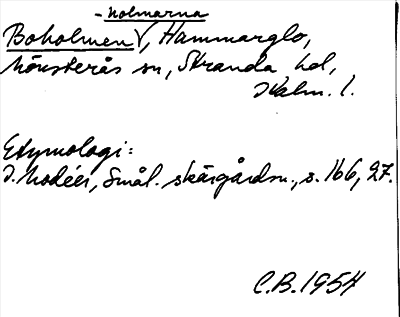 -holmarna
Boholmen √, Hammarglo,
Mönsterås sn, Stranda hd,
Kalm. l.
Etymologi:
I. Modéer, Smål. skärgårdsn., s. 166, 27.
C.B. 1954